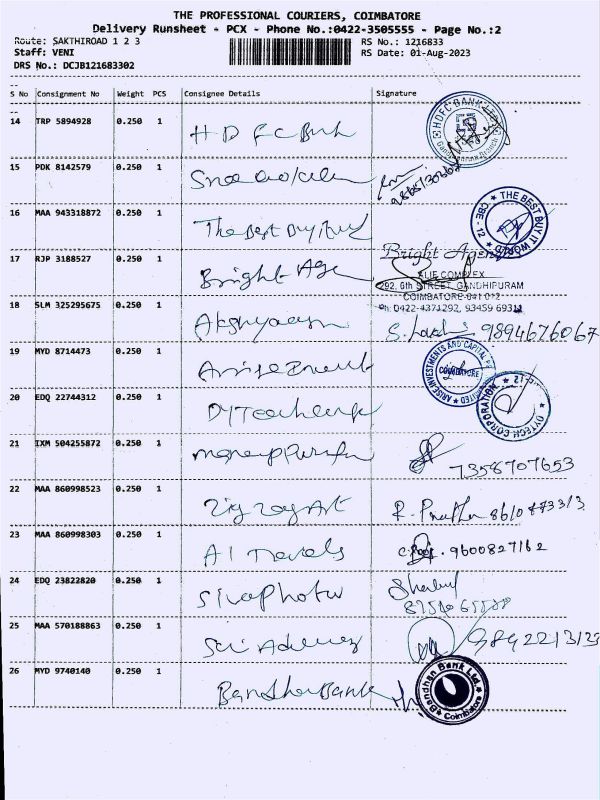 THE PROFESSIONAL COURIERS, COIMBATORE
Delivery Runsheet - PCX - Phone No.:0422-3505555 - Page No.:2
Route: SAKTHIROAD 1 2 3 RS No.: 1216833
Staff: VENI RS Date: 01-Aug-2023
DRS No.: DCJB121683302
S No Consignment No Weight PCS Consignee Details Signature
14 TRP 5894928 0.250 1 HDFC Bank HDFC BANK LTD
15 PDK 8142579 0.250 1
16 MAA 943318872 0.250 1 The Best Buy THE BEST BUY IT WORLD CBE - 12
17 RJP 3188527 0.250 1 Bright Age Bright Agency
COMPLEX
292, 6th STREET, GANDHIPURAM
COIMBATORE-641 012
Ph: 0422-4371292, 93459 69311
18 SLM 325295675 0.250 1 9894676067
19 MYD 8714473 0.250 1 Arise ARISE INVESTMENTS AND CAPITAL COIMBATORE
20 EDQ 22744312 0.250 1 DYTECH CORPORATION
21 IXM 504255872 0.250 1 7358707653
22 MAA 860998523 0.250 1 Zig Zag Art R.
23 MAA 860998303 0.250 1 A1 Travels 9600827162
24 EDQ 23822820 0.250 1 Siva Photo
25 MAA 570188863 0.250 1 Sri
26 MYD 9740140 0.250 1 Bandhan Bank Bandhan Bank Ltd. Coimbatore